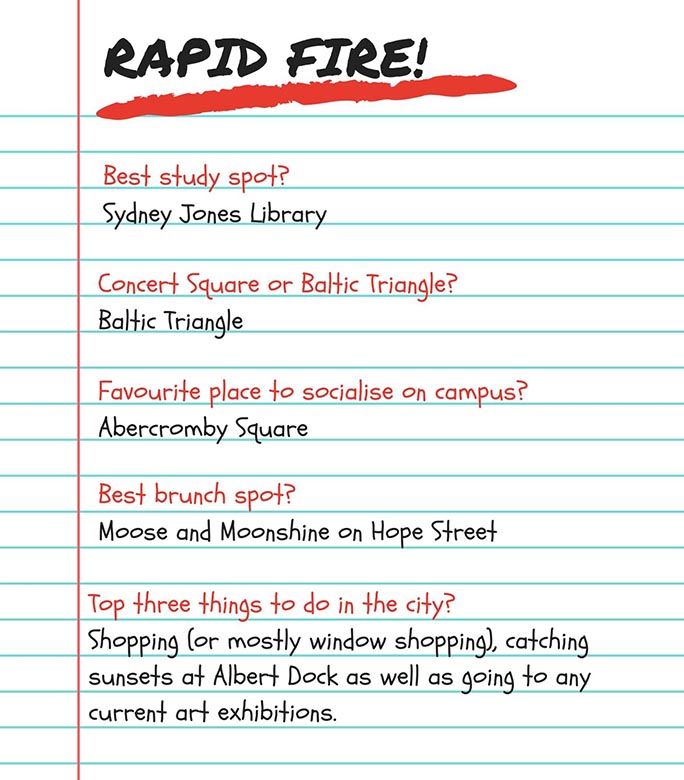 RAPID FIRE!
Best study spot?
Sydney Jones Library
Concert Square or Baltic Triangle?
Baltic Triangle
Favourite place to socialise on campus?
Abercromby Square
Best brunch spot?
Moose and Moonshine on Hope Street
Top three things to do in the city?
Shopping (or mostly window shopping), catching
sunsets at Albert Dock as well as going to any
current art exhibitions.